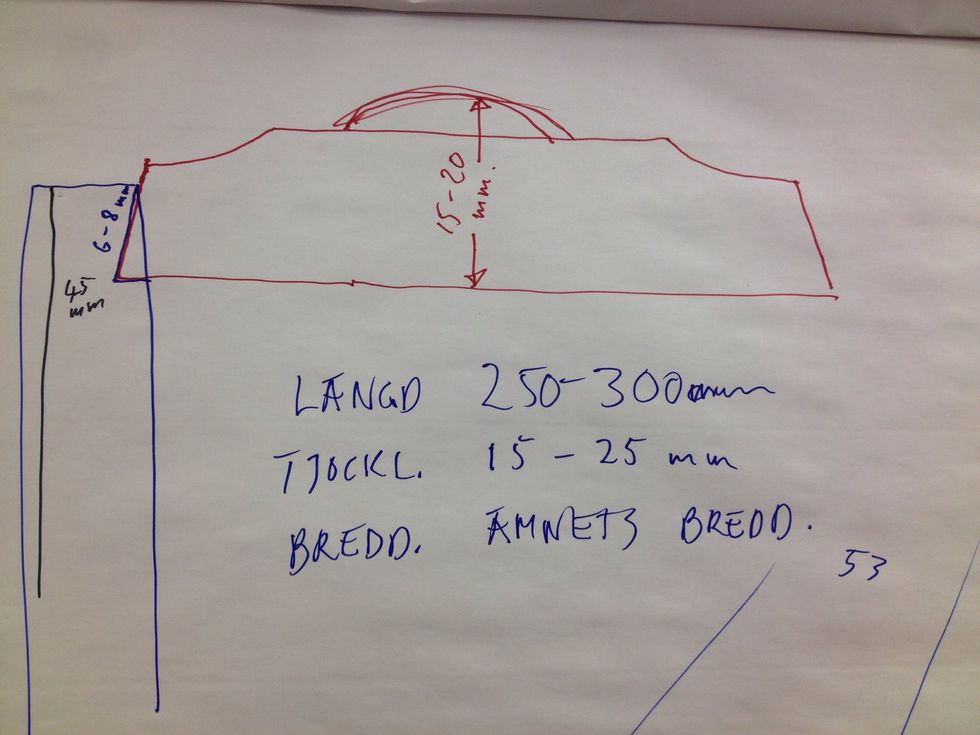 15-20 mm.
6-8 mm
45 mm
LÄNGD 250-300mm
TJOCKL. 15-25 mm
BREDD. ÄMNETS BREDD.
53